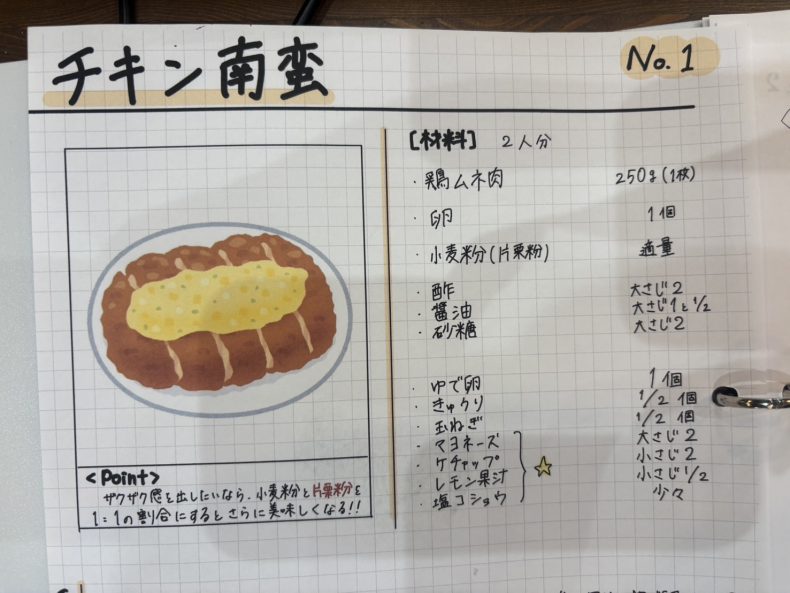 チキン南蛮
No.1
[材料] 2人分
・鶏ムネ肉 250g(1枚)
・卵 1個
・小麦粉(片栗粉) 適量
・酢 大さじ2
・醤油 大さじ1と1/2
・砂糖 大さじ2
・ゆで卵 1個
・きゅうり 1/2個
・玉ねぎ 1/2個
・マヨネーズ 大さじ2
・ケチャップ 小さじ2
・レモン果汁 小さじ1/2
・塩コショウ 少々
☆
<Point>
ザクザク感を出したいなら、小麦粉と片栗粉を
1:1の割合にするとさらに美味しくなる!!